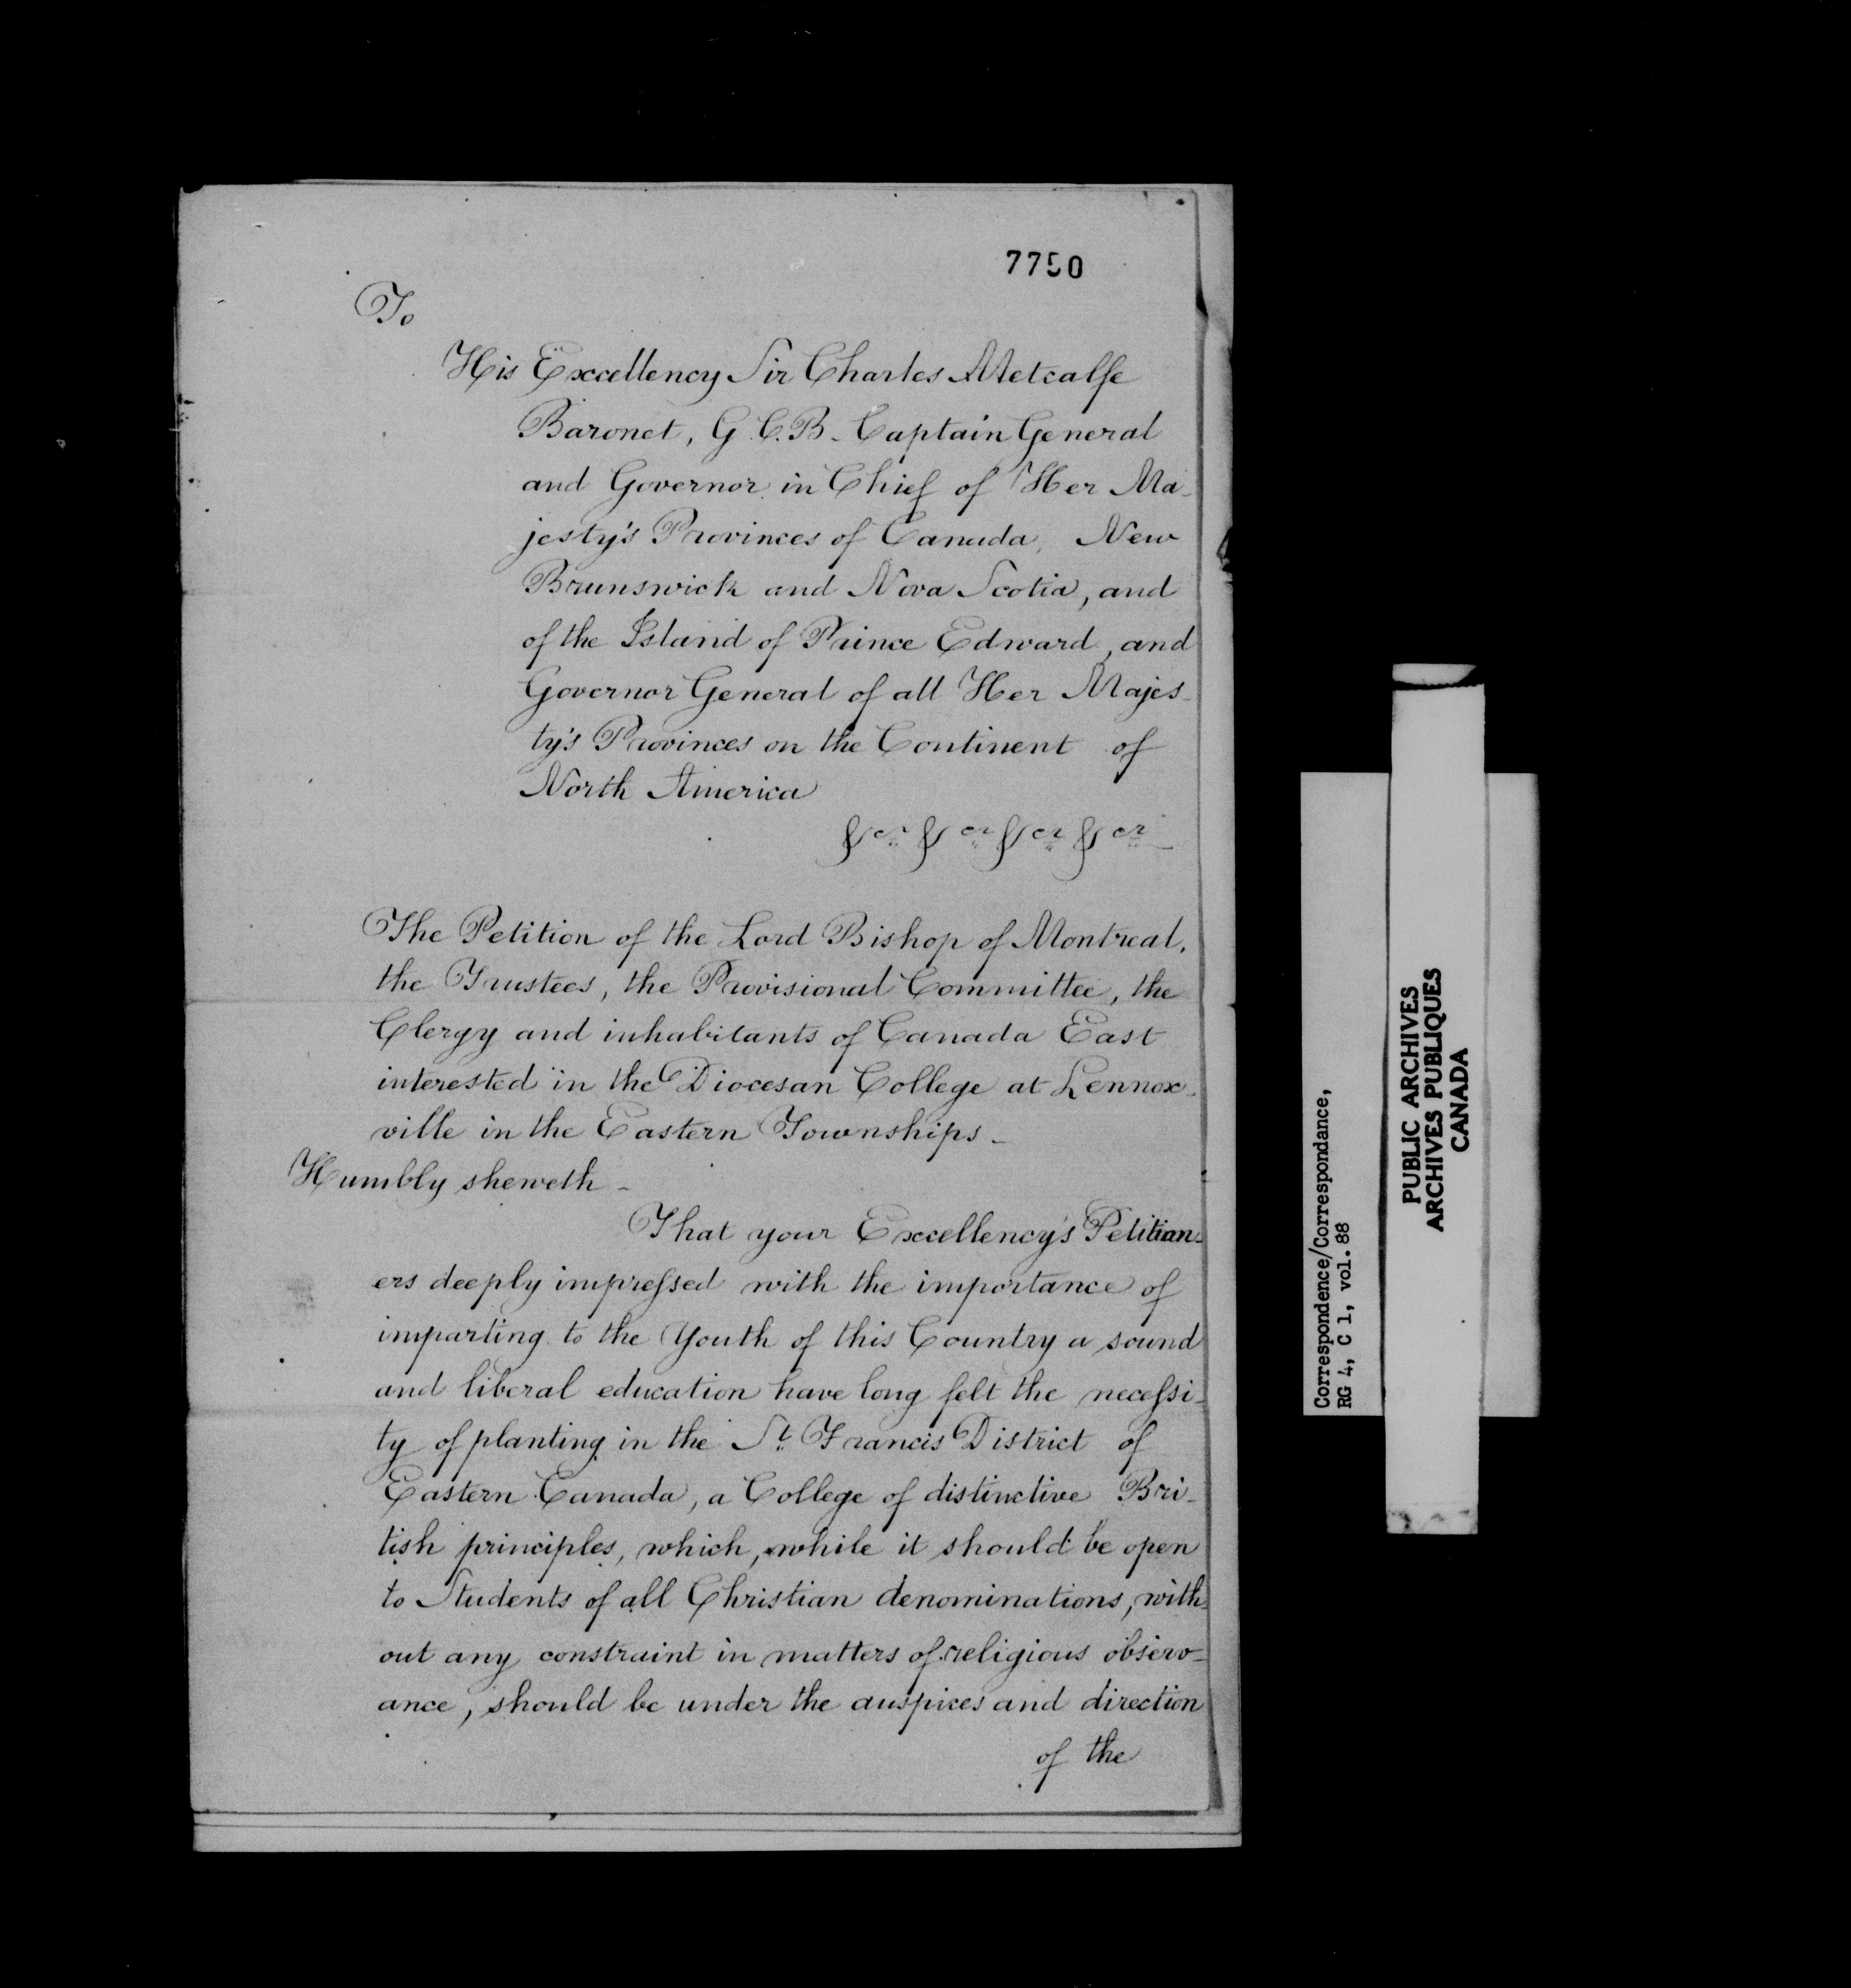 7750
To
His Excellency Sir Charles Metcalfe
Baronet, G.C.B. Captain General
and Governor in Chief of Her Ma-
jesty's Provinces of Canada, New
Brunswick and Nova Scotia, and
of the Island of Prince Edward, and
Governor General of all Her Majes-
ty's Provinces on the Continent of
North America
&ca &ca &ca &ca
The Petition of the Lord Bishop of Montreal,
the Trustees, the Provisional Committee, the
Clergy and inhabitants of Canada East
interested in the Diocesan College at Lennox-
ville in the Eastern Townships-
Humbly sheweth-
That your Excellency's Petition-
ers deeply impressed with the importance of
imparting to the Youth of this Country a sound
and liberal education have long felt the necessi-
ty of planting in the St. Francis District of
Eastern Canada, a College of distinctive Bri-
tish principles, which, while it should be open
to Students of all Christian denominations, with-
out any constraint in matters of religious observ-
ance, should be under the auspices and direction
of the
Correspondence/Correspondance,
RG 4, C 1, vol. 88
PUBLIC ARCHIVES
ARCHIVES PUBLIQUES
CANADA